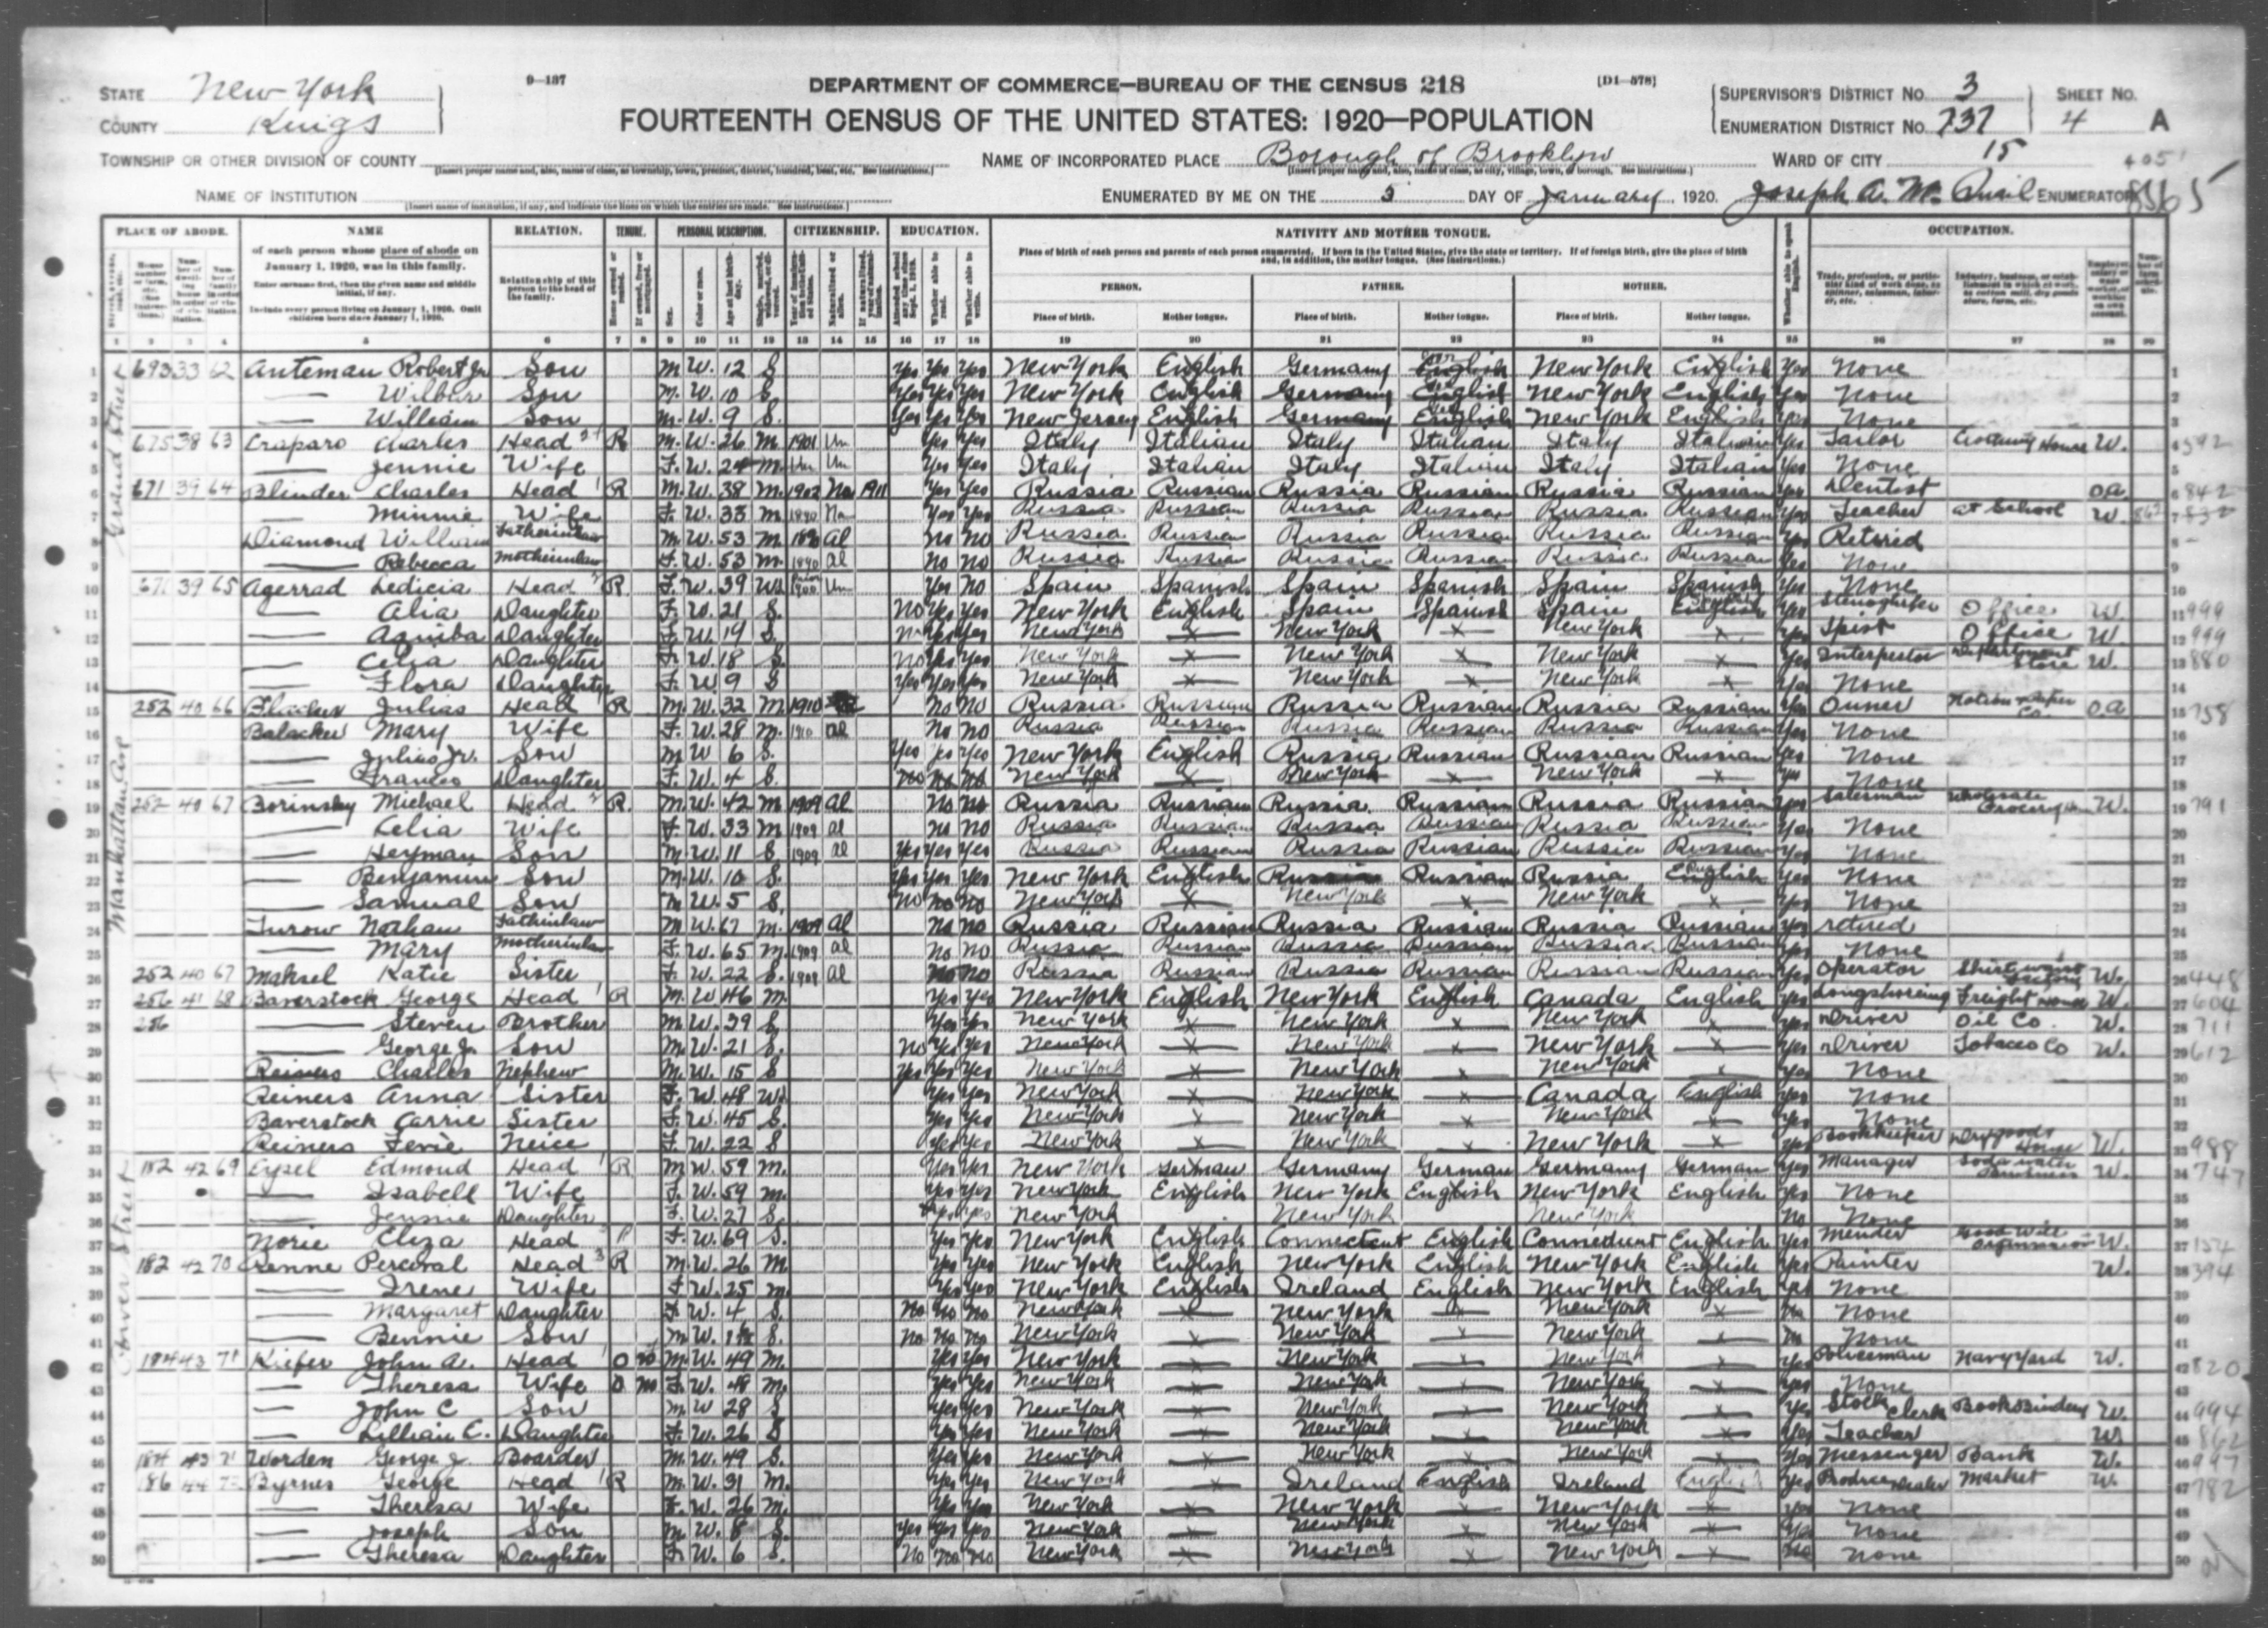 STATE New York
COUNTY Kings
9-137
DEPARTMENT OF COMMERCE—BUREAU OF THE CENSUS 218
[D1-578]
FOURTEENTH CENSUS OF THE UNITED STATES: 1920—POPULATION
SUPERVISOR'S DISTRICT NO. 3
ENUMERATION DISTRICT NO. 737
SHEET NO. 4 A
TOWNSHIP OR OTHER DIVISION OF COUNTY
NAME OF INCORPORATED PLACE Borough of Brooklyn
WARD OF CITY 15
NAME OF INSTITUTION
ENUMERATED BY ME ON THE 5 DAY OF January, 1920. Joseph A. Mc Quail ENUMERATOR
8565
PLACE OF ABODE. NAME RELATION. TENURE. PERSONAL DESCRIPTION. CITIZENSHIP. EDUCATION. NATIVITY AND MOTHER TONGUE. OCCUPATION.
of each person whose place of abode on January 1, 1920, was in this family.
Enter surname first, then the given name and middle initial, if any.
Include every person living on January 1, 1920. Omit children born since January 1, 1920.
Relationship of this person to the head of the family.
Place of birth of each person and parents of each person enumerated. If born in the United States, give the state or territory. If of foreign birth, give the place of birth and, in addition, the mother tongue. (See Instructions.)
PERSON. FATHER. MOTHER.
Place of birth. Mother tongue. Place of birth. Mother tongue. Place of birth. Mother tongue.
Grand Street
1 693 33 62 Auteman Robert Jr Son M W. 12 S Yes Yes Yes New York English Germany English New York English Yes None
2 Wilbur Son M. W. 10 S Yes Yes Yes New York English Germany English New York English Yes None
3 William Son M. W. 9 S. Yes Yes Yes New Jersey English Germany English New York English Yes None
4 675 38 63 Craparo Charles Head R M. W. 26 M 1901 Un Yes Yes Italy Italian Italy Italian Italy Italian Yes Tailor W. 592
5 Jennie Wife F. W. 24 M Un Un Yes Yes Italy Italian Italy Italian Italy Italian Yes None
6 671 39 64 Blinder Charles Head 1 R M. W. 38 M. 1902 Na 1911 Yes Yes Russia Russian Russia Russian Russia Russian Yes Dentist OA 842
7 Minnie Wife F. W. 33 M 1890 Na Yes Yes Russia Russian Russia Russian Russia Russian Yes Teacher at School W.
8 Diamond William Fatherinlaw M. W. 53 M Al No No Russia Russia Russia Russian Russia Russian Yes Retired
9 Rebecca Motherinlaw F. W. 53 M 1890 Al No No Russia Russia Russia Russian Russia Russian Yes None
10 671 39 65 Agerrad Ledicia Head R F. W. 39 Wd 1900 Un Yes No Spain Spanish Spain Spanish Spain Spanish Yes None
11 Alia Daughter F. W. 21 S. No Yes Yes New York English Spain Spanish Spain Yes Office W. 999
12 Aquiba Daughter F. W. 19 S. No Yes Yes New York x New York x New York x Yes Office W. 999
13 Celia Daughter F. W. 18 S No Yes Yes New York x New York x New York x Yes Department Store W. 880
14 Flora Daughter F. W. 9 S Yes Yes Yes New York x New York x New York x Yes None
Manhattan Ave
15 252 40 66 Julius Head R M. W. 32 M 1910 No No Russia Russian Russia Russian Russia Russian Yes Owner OA 758
16 Balacker Mary Wife F. W. 28 M. 1910 Al No No Russia Russian Russia Russian Russia Russian Yes None
17 Julius Jr. Son M W 6 S. Yes Yes Yes New York English Russia Russian Russian Russian Yes None
18 Frances Daughter F. W. 4 S. No No No New York x New York x New York x Yes None
19 252 40 67 Borinsky Michael Head 2 R. M. W. 42 M 1909 Al No No Russia Russian Russia Russian Russia Russian Yes Salesman Wholesale W. 791
20 Celia Wife F. W. 33 M 1909 Al No No Russia Russian Russia Russian Russia Russian Yes None
21 Heyman Son M. W. 11 S 1909 Al Yes Yes Yes Russia Russian Russia Russian Russia Russian Yes None
22 Benjamin Son M. W. 10 S. Yes Yes Yes New York English Russia Russian Russia English Yes None
23 Samual Son M W. 5 S No No No New York x New York x New York x Yes None
24 Turow Nathan Fatherinlaw M W. 67 M. 1909 Al No No Russia Russian Russia Russian Russia Russian Yes retired
25 Mary Motherinlaw F. W. 65 M 1909 Al No No Russia Russian Russia Russian Russia Russian Yes None
26 252 40 67 Mahsel Katie Sister F. W. 22 S. 1908 Al No No Russia Russian Russia Russian Russian Russian Yes Operator W. 448
27 256 41 68 Baverstock George Head 1 R M. W 46 M. Yes Yes New York English New York English Canada English Yes Longshoreing Freight W. 604
28 256 Steven Brother M. W. 39 S. Yes Yes New York x New York x New York x Yes Driver Oil Co. W. 711
29 George Jr. Son M. W. 21 S. No Yes Yes New York x New York x New York x Yes Driver Tobacco Co W. 612
30 Reiners Charles Nephew M. W. 15 S Yes Yes Yes New York x New York x New York x Yes None
31 Reiners Anna Sister F. W. 48 Wd Yes Yes New York x New York x Canada English Yes None
32 Baverstock Carrie Sister F. W. 45 S. Yes Yes New York x New York x New York x Yes None
33 Reiners Fevie Neice F. W. 22 S Yes Yes New York x New York x New York x Yes Bookkeeper Drygoods House W. 988
34 182 42 69 Eysel Edmond Head 1 R M W. 59 M. Yes Yes New York German Germany German Germany German Yes Manager Soda water Business W. 747
35 Isabell Wife F. W. 59 M. Yes Yes New York English New York English New York English Yes None
36 Jennie Daughter F. W. 27 S. Yes Yes New York New York New York No None
37 Norie Eliza Head R F. W. 69 S. Yes Yes New York English Connecticut English Connecticut English Yes Mender Good Will W. 154
38 182 42 70 Renne Percival Head 3 R M. W. 26 M. Yes Yes New York English New York English New York English Yes Painter W. 394
39 Irene Wife F W. 25 M. Yes Yes New York English Ireland English New York English Yes None
40 Margaret Daughter F W. 4 S. No No No New York x New York x New York x No None
41 Bennie Son M W. S. No No No New York x New York x New York x No None
42 184 43 71 Kiefer John A. Head 1 O M. W. 49 M. Yes Yes New York x New York x New York x Yes Policeman Navy Yard W. 820
43 Theresa Wife O F. W. 48 M. Yes Yes New York x New York x New York x Yes None
44 John C Son M W 28 S Yes Yes New York x New York x New York x Yes Stock Clerk Bookbindery W. 994
45 Lillian C. Daughter F. W. 26 S Yes Yes New York x New York x New York x Yes Teacher W 862
46 184 43 71 Worden George J Boarder M. W. 49 S. Yes Yes New York x New York x New York x Yes Messenger Bank W. 997
47 186 44 72 Byrnes George Head 1 R M. W. 31 M. Yes Yes New York x Ireland English Ireland English Yes Produce Dealer Market W. 782
48 Theresa Wife F. W. 26 M. Yes Yes New York x New York x New York x Yes None
49 Joseph Son M. W. 8 S. Yes Yes Yes New York x New York x New York x Yes None
50 Theresa Daughter F. W. 6 S. No No No New York x New York x New York x No None